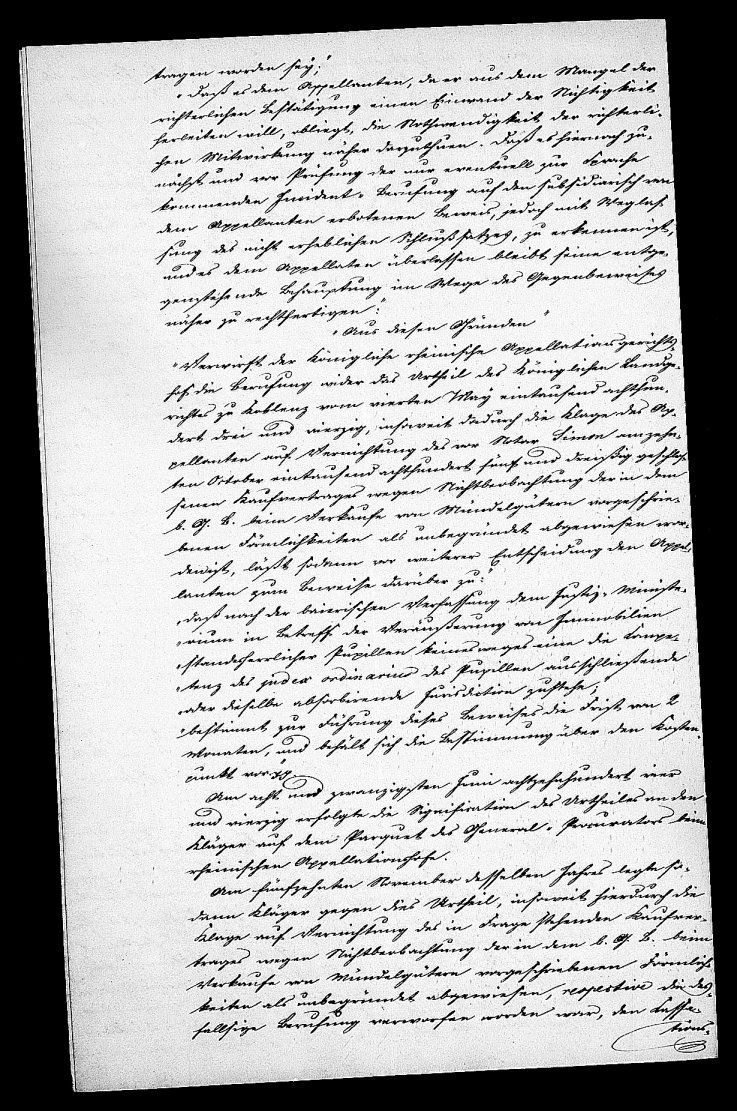 tragen worden sey;"
"Daß es dem Appellanten, da er aus dem Mangel der
richterlichen Bestätigung einen Einwand der Nichtigkeit
herleiten will, obliegt, die Nothwendigkeit der richterli-
chen Mitwirkung näher darzuthuen. Daß es hiernach zu-
nächst und vor Prüfung der nur eventuell zur Sprache
kommenden Incident-Berufung auf den subsidiarisch von
dem Appellanten erbotenen Beweis, jedoch mit Weglas-
sung des nicht erheblichen Schlußsatzes, zu erkennen ist,
und es dem Appellaten überlassen bleibt seine entge-
genstehende Behauptung im Wege des Gegenbeweises
näher zu rechtfertigen:"
"Aus diesen Gründen"
"Verwirft der Königliche rheinische Appellationsgerichts-
hof die Berufung wider das Urtheil des Königlichen Landge-
richtes zu Koblenz vom vierten May eintausend achthun-
dert drei und vierzig, insoweit dadurch die Klage des Ap-
pellanten auf Vernichtung des vor Notar Simon am zehn-
ten October eintausend achthundert fünf und dreißig geschlos-
senen Kaufvertrages wegen Nichtbeobachtung der in dem
b. G. B. beim Verkaufe von Mündelgütern vorgeschrie-
benen Förmlichkeiten als unbegründet abgewiesen wor-
den ist, läßt sodann vor weiterer Entscheidung den Appel-
lanten zum Beweise darüber zu:"
"daß nach der baierischen Verfassung dem Justiz-Ministe-
"rium in Betreff der Veräußerung von Immobilien
"standesherrlicher Pupillen keinesweges eine die Compe-
"tenz des judex ordinarius des Pupillen ausschließende
"oder dieselbe absorbirende Jurisdiction zustehe;
"bestimmt zur Führung dieses Beweises die Frist von 2
Monaten, und behält sich die Bestimmung über den Kosten-
punkt vor."
Am acht und zwanzigsten Juni achtzehnhundert vier
und vierzig erfolgte die Signification des Urtheiles an den
Kläger auf dem Parquet des General-Procurators beim
rheinischen Appellationshofe.
Am fünfzehnten November desselben Jahres legte so-
dann Kläger gegen dies Urtheil, insoweit hierdurch die
Klage auf Vernichtung des in Frage stehenden Kaufver-
trages wegen Nichtbeobachtung der in dem b. G. B. beim
Verkaufe von Mündelgütern vorgeschriebenen Förmlich-
keiten als unbegründet abgewiesen, respective die des-
fallsige Berufung verworfen worden war, den Cassa-
tions-